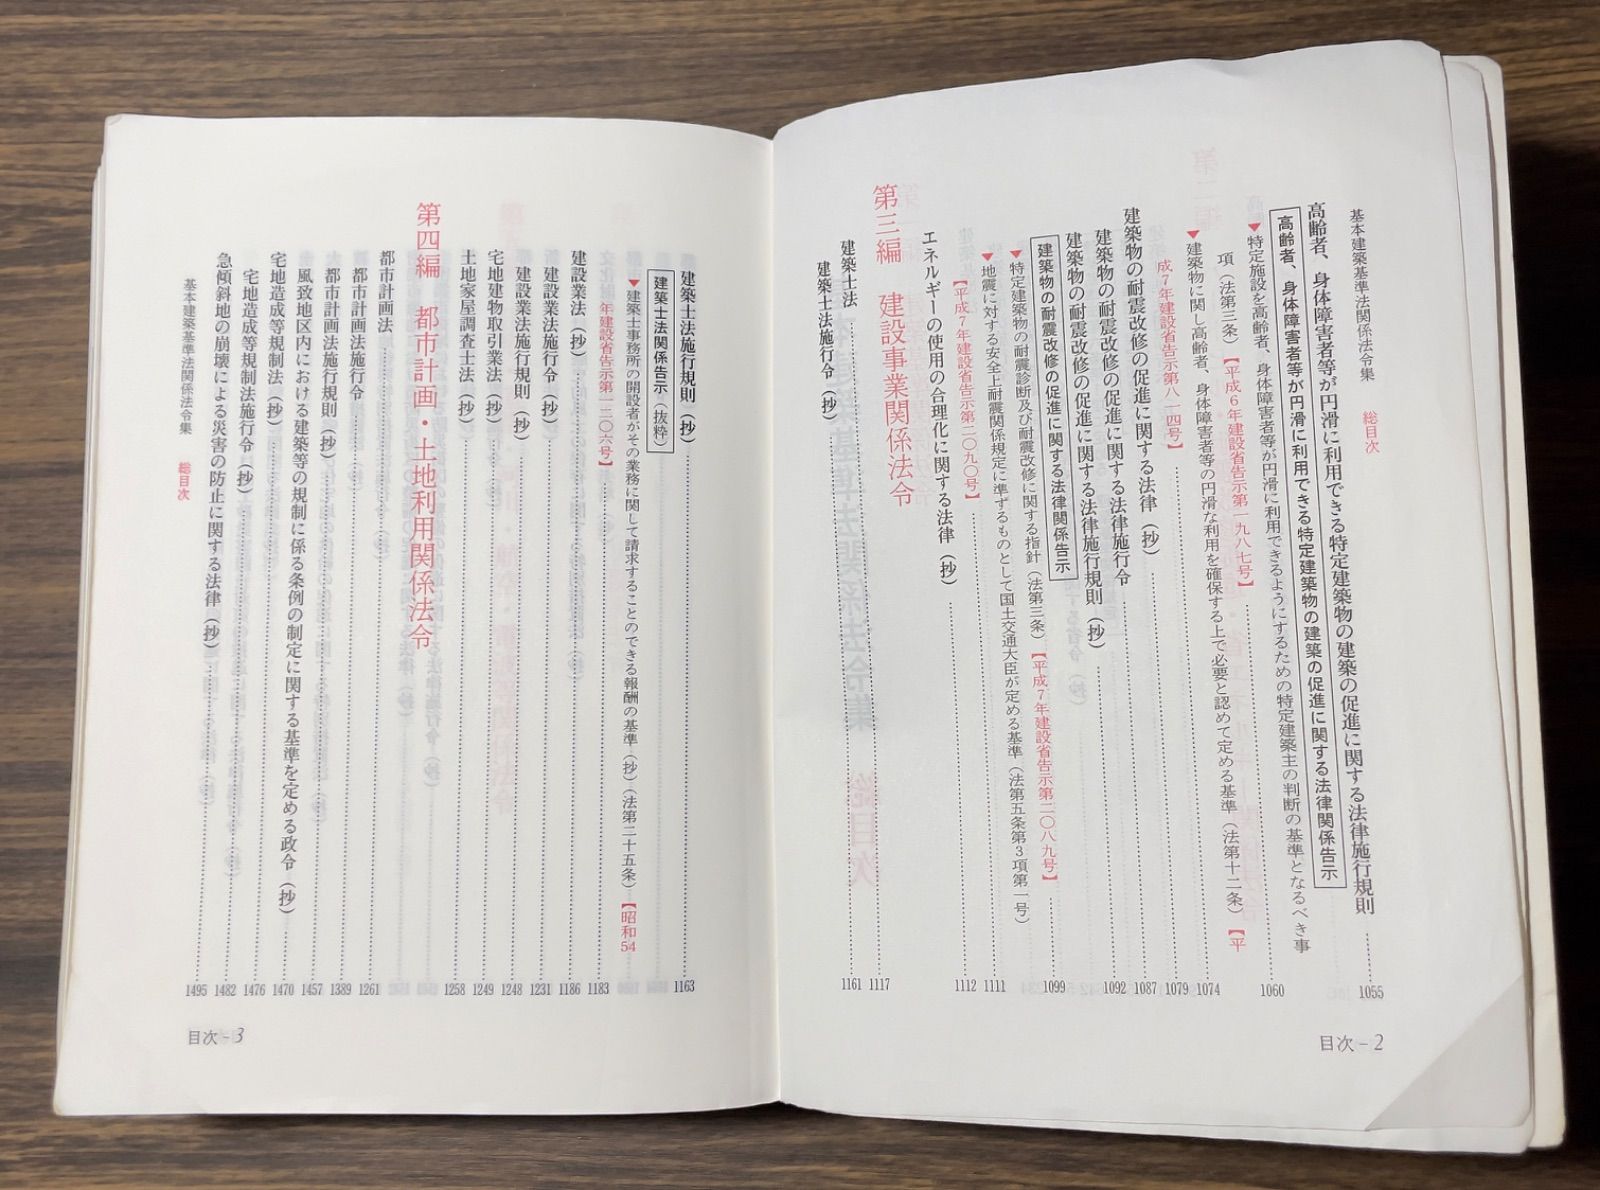 基本建築基準法関係法令集　総目次
高齢者、身体障害者等が円滑に利用できる特定建築物の建築の促進に関する法律施行規則……1055
高齢者、身体障害者等が円滑に利用できる特定建築物の建築の促進に関する法律関係告示
▼特定施設を高齢者、身体障害者等が円滑に利用できるようにするための特定建築主の判断の基準となるべき事
項（法第三条）【平成6年建設省告示第一九八七号】……1060
▼建築物に関し高齢者、身体障害者等の円滑な利用を確保する上で必要と認めて定める基準（法第十二条）【平
成7年建設省告示第八一四号】……1074
建築物の耐震改修の促進に関する法律（抄）……1079
建築物の耐震改修の促進に関する法律施行令……1087
建築物の耐震改修の促進に関する法律施行規則（抄）……1092
建築物の耐震改修の促進に関する法律関係告示
▼特定建築物の耐震診断及び耐震改修に関する指針（法第三条）【平成7年建設省告示第二〇八九号】……1099
▼地震に対する安全上耐震関係規定に準ずるものとして国土交通大臣が定める基準（法第五条第3項第一号）
【平成7年建設省告示第二〇九〇号】……1111
エネルギーの使用の合理化に関する法律（抄）……1112
第三編　建設事業関係法令
建築士法……1117
建築士法施行令（抄）……1161
目次－2
建築士法施行規則（抄）……1163
建築士法関係告示（抜粋）
▼建築士事務所の開設者がその業務に関して請求することのできる報酬の基準（抄）（法第二十五条）【昭和54
年建設省告示第一二〇六号】……1183
建設業法（抄）……1186
建設業法施行令（抄）……1231
建設業法施行規則（抄）……1248
宅地建物取引業法（抄）……1249
土地家屋調査士法（抄）……1258
第四編　都市計画・土地利用関係法令
都市計画法……1261
都市計画法施行令……1389
都市計画法施行規則（抄）……1457
風致地区内における建築等の規制に係る条例の制定に関する基準を定める政令（抄）……1470
宅地造成等規制法（抄）……1476
宅地造成等規制法施行令（抄）……1482
急傾斜地の崩壊による災害の防止に関する法律（抄）……1495
基本建築基準法関係法令集　総目次
目次－3